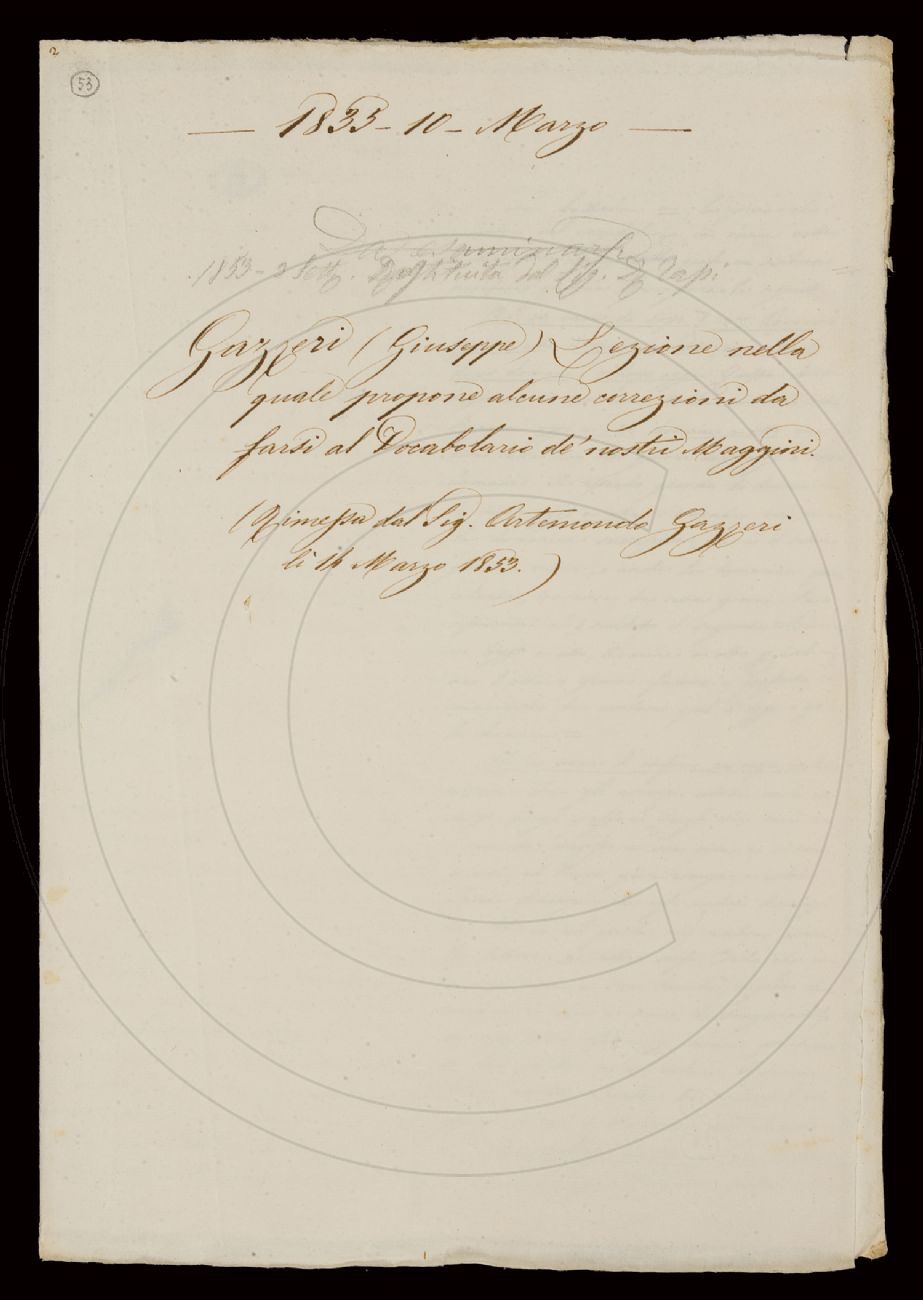 2
53
— 1835 - 10 - Marzo —
Da esaminarsi
1853 - 2 Sett.
Gazzeri (Giuseppe) Lezione nella
quale propone alcune correzioni da
farsi al Vocabolario de' nostri Maggiori.
(Rimessa dal Sig. Artemondo Gazzeri
li 14 Marzo 1853.)